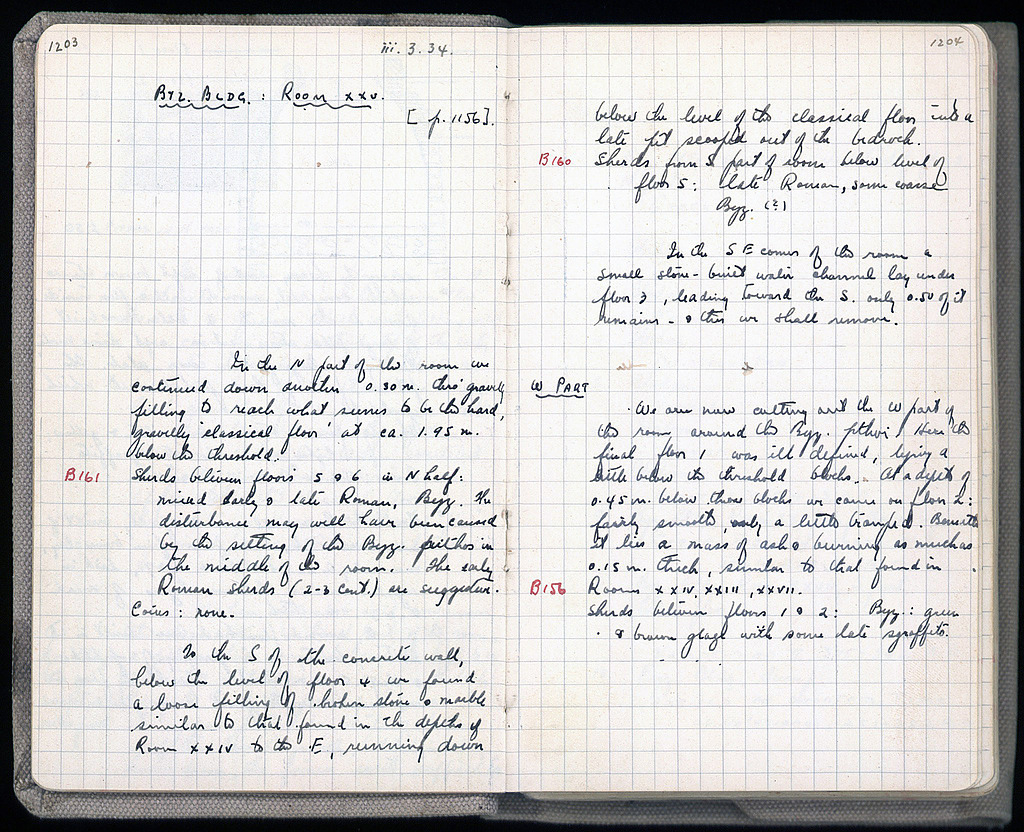 1203
iii. 3. 34.
BYZ. BLDG. : ROOM XXV.
[p. 1156].
In the N part of the room we
continued down another 0.30 m. thro' gravelly
filling to reach what seems to be the hard,
gravelly 'classical floor' at ca. 1.95 m.
below the threshold.
B161 Sherds between floors 5 & 6 in N half:
mixed early & late Roman, Byz. The
disturbance may well have been caused
by the setting of the Byz. pithos in
the middle of the room. The early
Roman sherds (2-3 cent.) are suggestive.
Coins: none.
To the S of the concrete wall,
below the level of floor 4 we found
a loose filling of broken stone & marble
similar to that found in the depths of
Room XXIV to the E, running down
1204
below the level of the classical floor into a
late pit scooped out of the bedrock.
B160 Sherds from S part of room below level of
floor 5: late Roman, some coarse
Byz. (?)
In the SE corner of the room a
small stone-built water channel lay under
floor 3, leading toward the S. only 0.50 of it
remains - & this we shall remove.
W PART
We are now cutting out the W part of
the room around the Byz. pithoi. Here the
final floor 1 was ill defined, lying a
little below the threshold blocks. At a depth of
0.45 m. below those blocks we came on floor 2:
fairly smooth, only a little tramped. Beneath
it lies a mass of ash & burning as much as
0.15 m. thick, similar to that found in
Rooms XXIV, XXIII, XXVII.
B156 Sherds between floors 1 & 2: Byz.: green
& brown glaze with some late sgraffito.